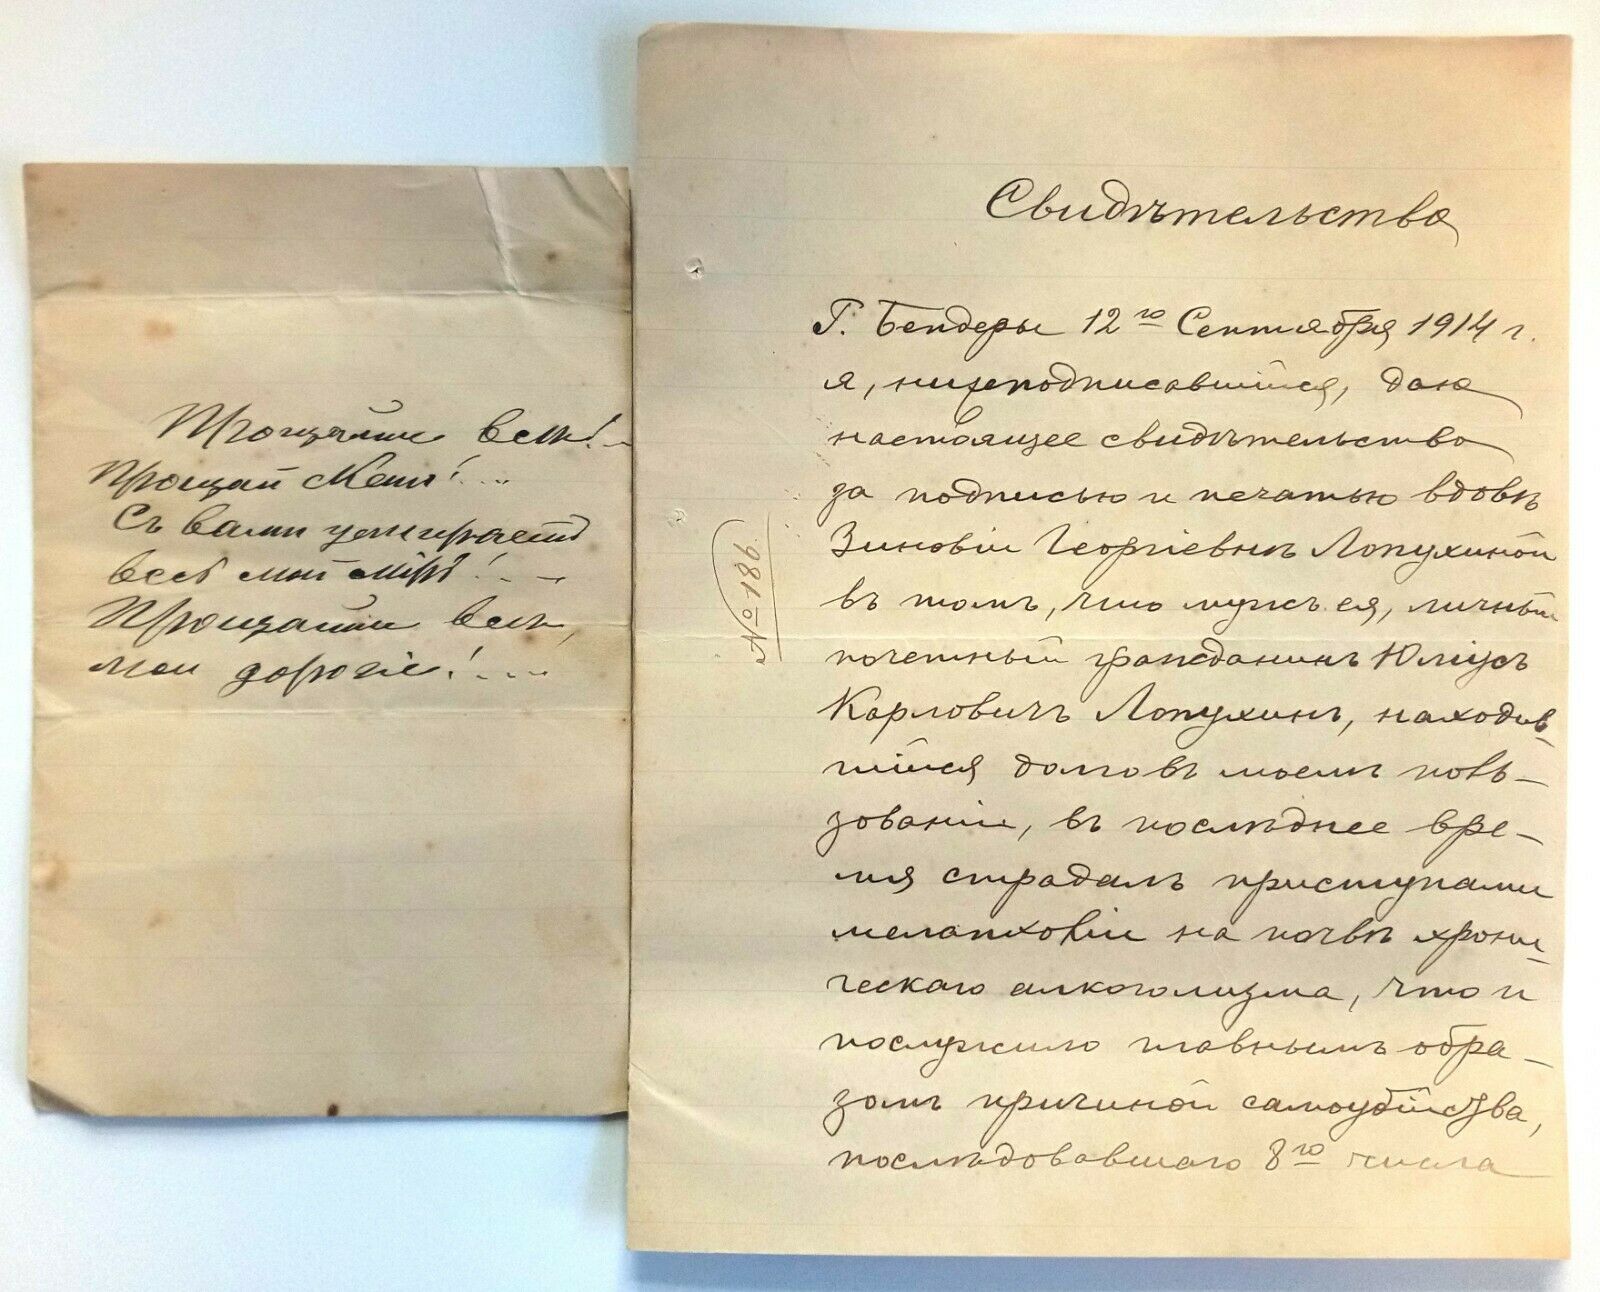 Прощайте всѣ!..
Прощай Женя!...
Съ вами умираетъ
весь мой міръ!...
Прощайте всѣ,
мои дорогіе!....
Свидѣтельство
№ 186.
Г. Бендеры 12го Сентября 1914 г.
я, нижеподписавшійся, даю
настоящее свидѣтельство
за подписью и печатью вдовѣ
Зиновіи Георгіевнѣ Лопухиной
въ томъ, что мужъ ея, личный
почетный гражданинъ Юліусъ
Карловичъ Лопухинъ, находив-
шійся долго въ моемъ поль-
зованіи, въ послѣднее вре-
мя страдалъ приступами
меланхоліи на почвѣ хрони-
ческаго алкоголизма, что и
послужило главнымъ обра-
зомъ причиной самоубійства,
послѣдовавшаго 8го числа